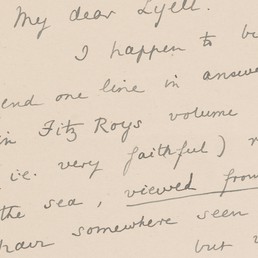 My dear Lyell.
I happen to b
end one line in answe
in Fitz Roys volume
i.e. very faithful)
the sea, viewed from
have somewhere seen
but